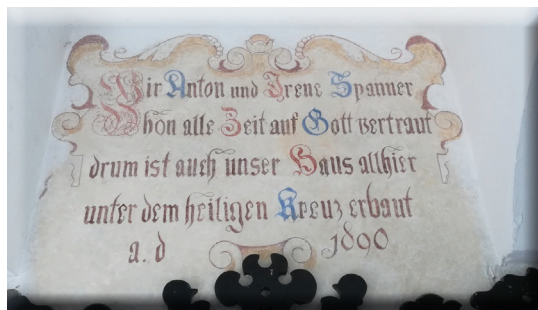 Wir Anton und Irene Spanner
Hhon alle Zeit auf Gott vertraut
drum ist auch unser Haus allhier
unter dem heiligen Kreuz erbaut
a. d 1890